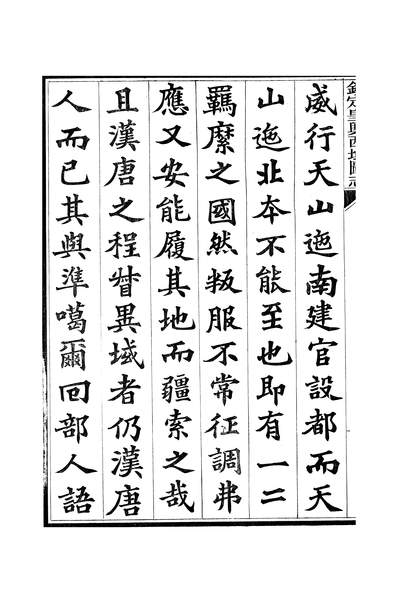 欽定皇輿西域圖志
威行天山迤南建官設都而天
山迤北夲不能至也即有一二
羈縻之國然叛服不常征調弗
應又安能履其地而疆索之哉
且漢唐之程督異域者仍漢唐
人而已其與準噶爾回部人語